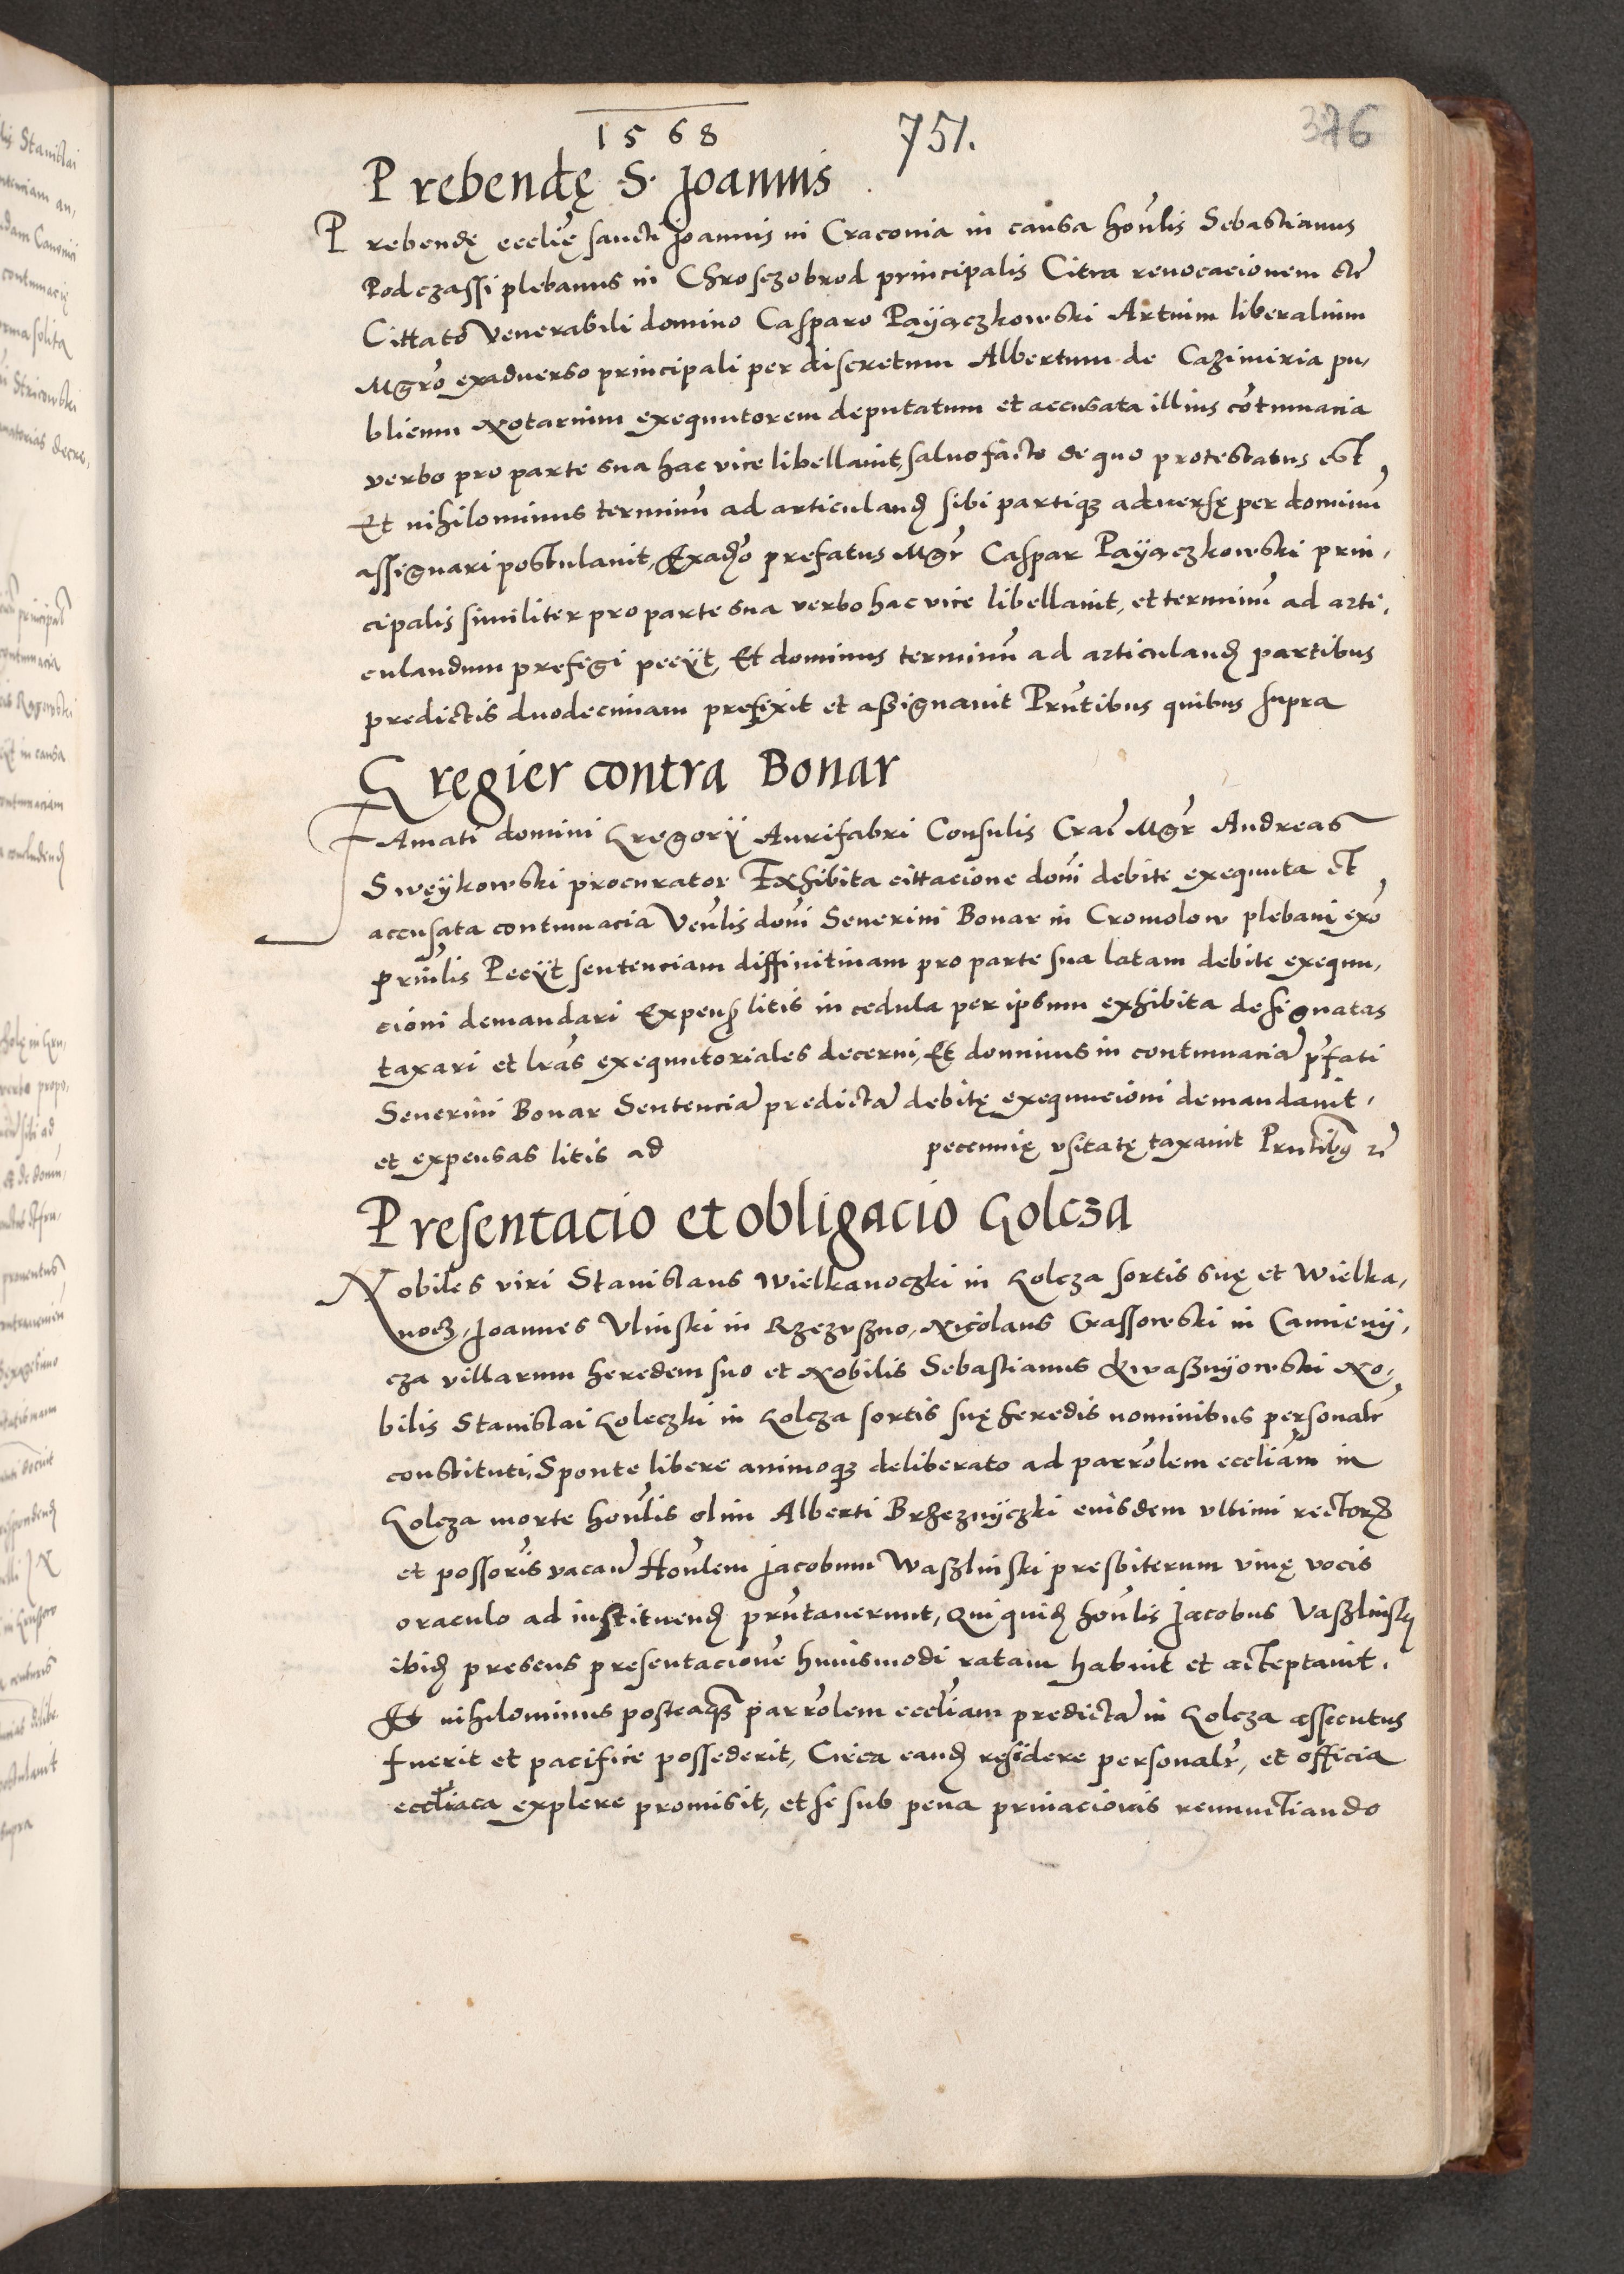 1568 751. 376
Prebendę S. Joannis
Prebendę ecclię sancti Joannis in Craconia in causa honlis Sebastianus
Podczassi plebanus in Chrosczobrod principalis Citra reuocacionem etc
Cittato Venerabili domino Casparo Payączkowski Artium liberalium
Mgro exaduerso principali per discretum Albertum de Cazimiria pu,
blicum Notarium exequutorem deputatum et accusata illius cotumacia
verbo pro parte sua hac vice libellauit, saluo facto de quo protestatus est,
Et nihilominus terminu ad articuland sibi partiq aduersę per dominu
assignari postulauit, Exado prefatus Mgr Caspar Payączkowski prin,
cipalis similiter pro parte sua verbo hac vice libellauit, et terminu ad arti,
culandum prefigi peciit, Et dominus terminu ad articuland partibus
predictis duodecimam prefixit et assignauit Prntibus quibus supra
Gregier contra Bonar
Famati domini Gregorÿ Aurifabri Consulis Crac Mgr Andreas
Sweÿkowski procurator Exhibita cittacione domi debite exequuta et
accusata contumacia Venlis domi Seuerini Bonar in Cromolow plebani exo
prinlis Peciit sentenciam diffinitiuam pro parte sua latam debite exequu,
cioni demandari Expens litis in cedula per ipsum exhibita designatas
taxari et lras exequutoriales decerni, Et dominus in contumacia pfati
Seuerini Bonar Sentencia predicta debitę exequucioni demandauit,
et expensas litis ad pecunnię vsitatę taxauit Prntibus
Presentacio et obligacio Golcza
Nobiles viri Stanislaus Wielkanoczki in Golcza sortis suę et Wielka,
nocz, Joannes Vlinski in Rzezvszno, Nicolaus Crassowski in Camienij,
cza villarum heredem suo et Nobilis Sebastianus Kwasznÿowski No,
bilis Stanislai Goleczki in Golcza sortis suę heredis nominibus personalr
constituti, Sponte libere animoq deliberato ad parrolem eccliam in
Golcza morte honlis olim Alberti Brzeznÿczki eiusdem vltimi rectoris
et possoris vacan Honlem Jacobum Waszlinski presbiterum viuę vocis
oraculo ad instituend prntauerunt, Qui quid honlis Jacobus Vaszlinsky
ibid presens presentacione huiusmodi ratam habuit et acceptauit.
Et nihilominus posteaq parrolem eccliam predicta in Golcza assecutus
fuerit et pacifice possederit, Circa eand residere personalr, et officia
eccliaca explere promisit, et se sub pena priuacionis renunctiando